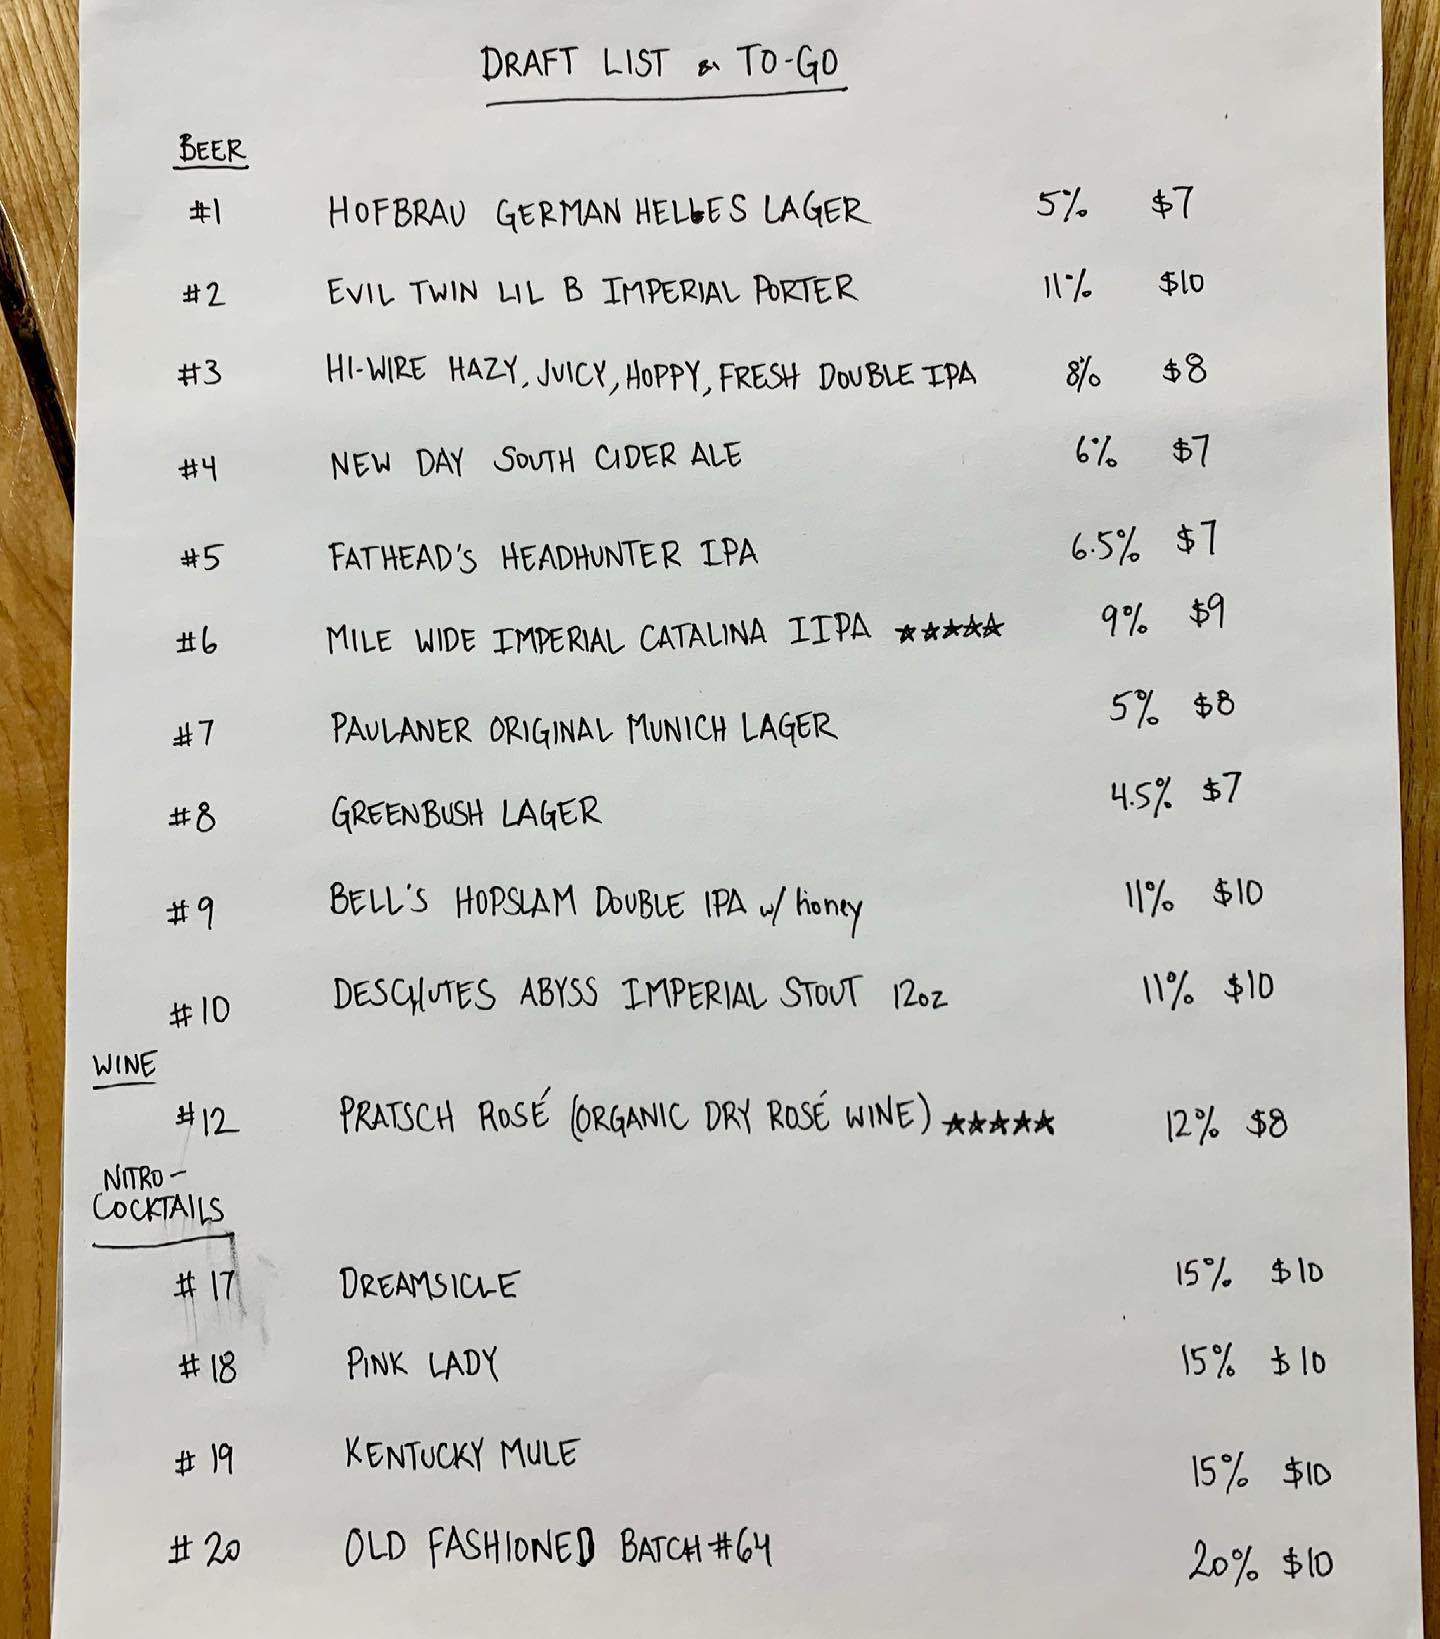 DRAFT LIST & TO-GO
BEER
#1 HOFBRAU GERMAN HELLES LAGER 5% $7
#2 EVIL TWIN LIL B IMPERIAL PORTER 11% $10
#3 HI-WIRE HAZY, JUICY, HOPPY, FRESH DOUBLE IPA 8% $8
#4 NEW DAY SOUTH CIDER ALE 6% $7
#5 FATHEAD'S HEADHUNTER IPA 6.5% $7
#6 MILE WIDE IMPERIAL CATALINA IIPA ★★★★★ 9% $9
#7 PAULANER ORIGINAL MUNICH LAGER 5% $8
#8 GREENBUSH LAGER 4.5% $7
#9 BELL'S HOPSLAM DOUBLE IPA w/ honey 11% $10
#10 DESCHUTES ABYSS IMPERIAL STOUT 12oz 11% $10
WINE
#12 PRATSCH ROSÉ (ORGANIC DRY ROSÉ WINE) ★★★★★ 12% $8
NITRO-
COCKTAILS
#17 DREAMSICLE 15% $10
#18 PINK LADY 15% $10
#19 KENTUCKY MULE 15% $10
#20 OLD FASHIONED BATCH #64 20% $10